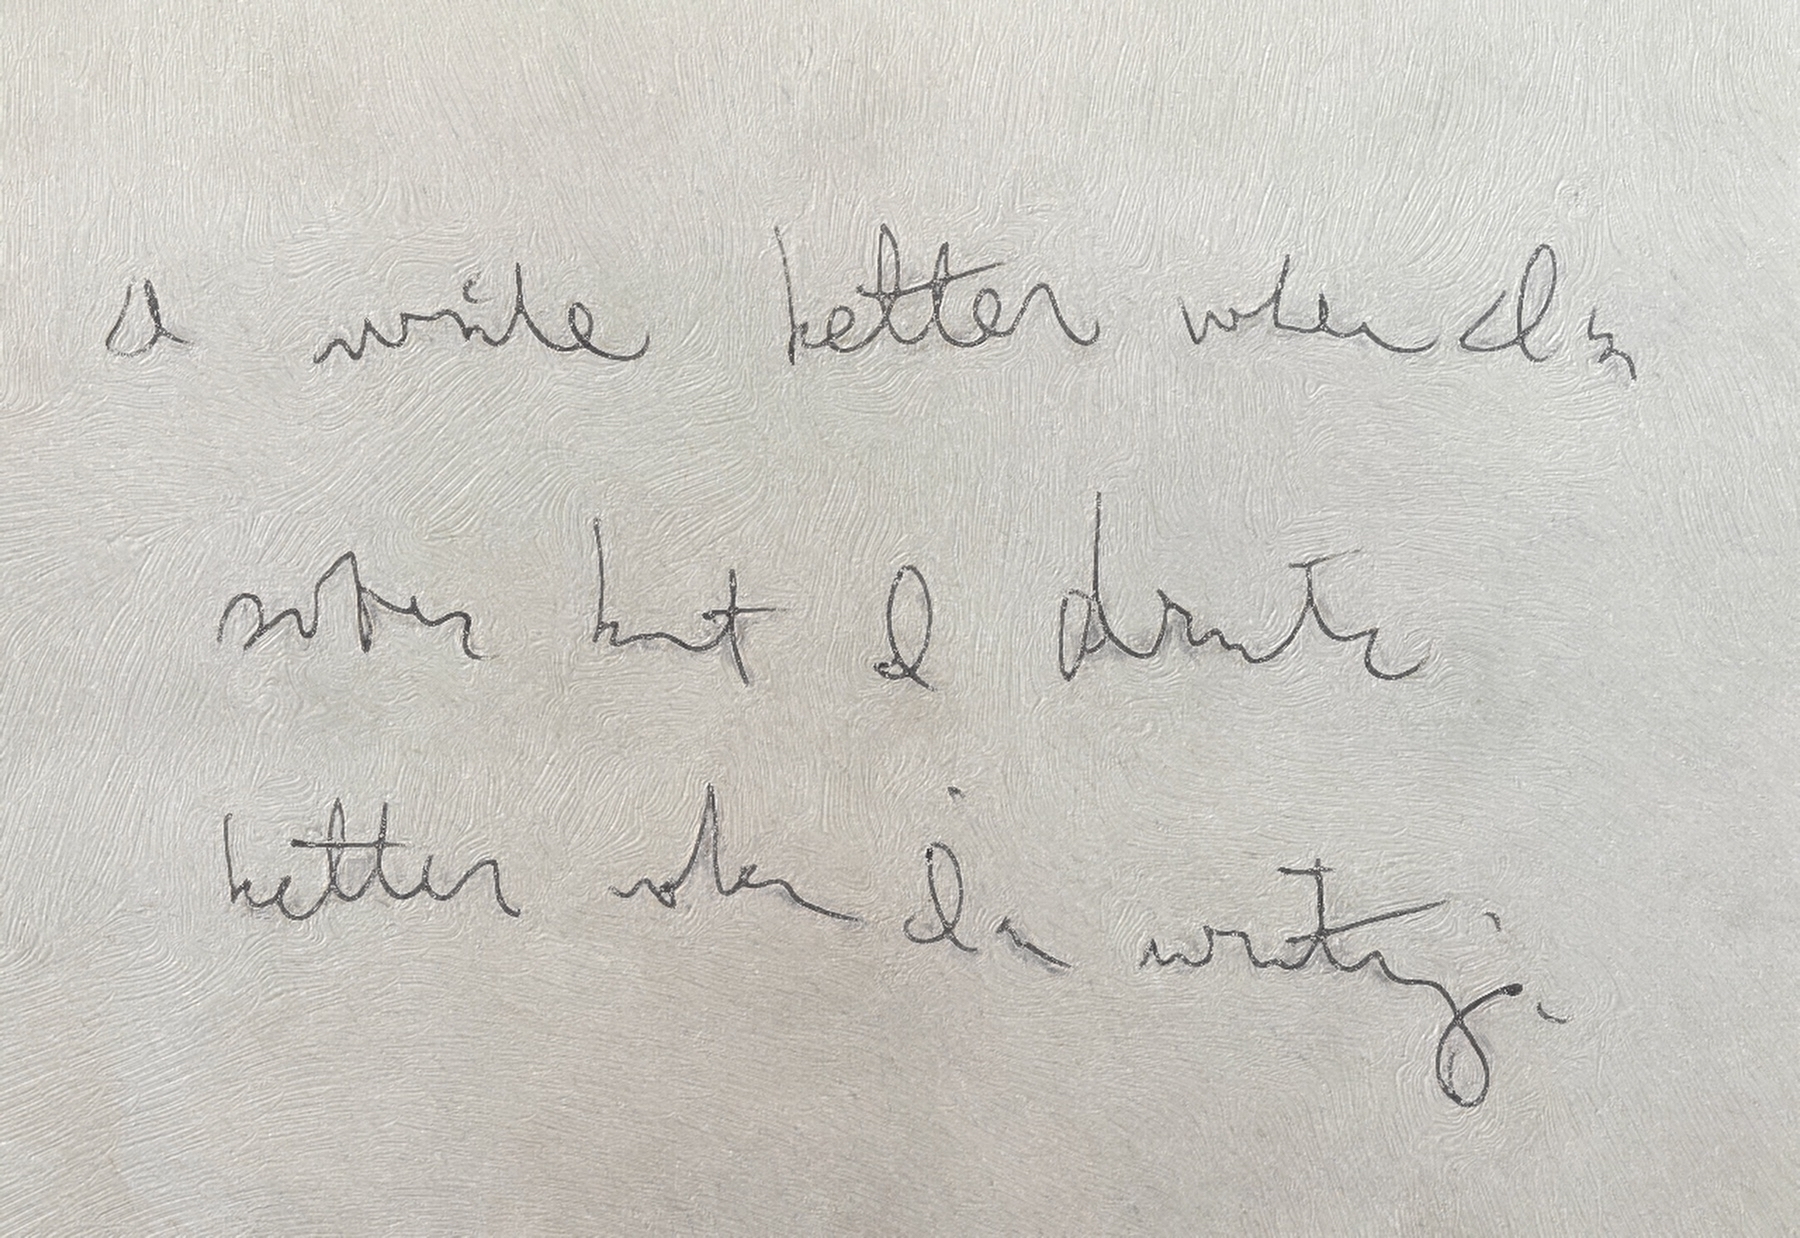 I write better when I'm
sober but I drink
better when I'm writing.